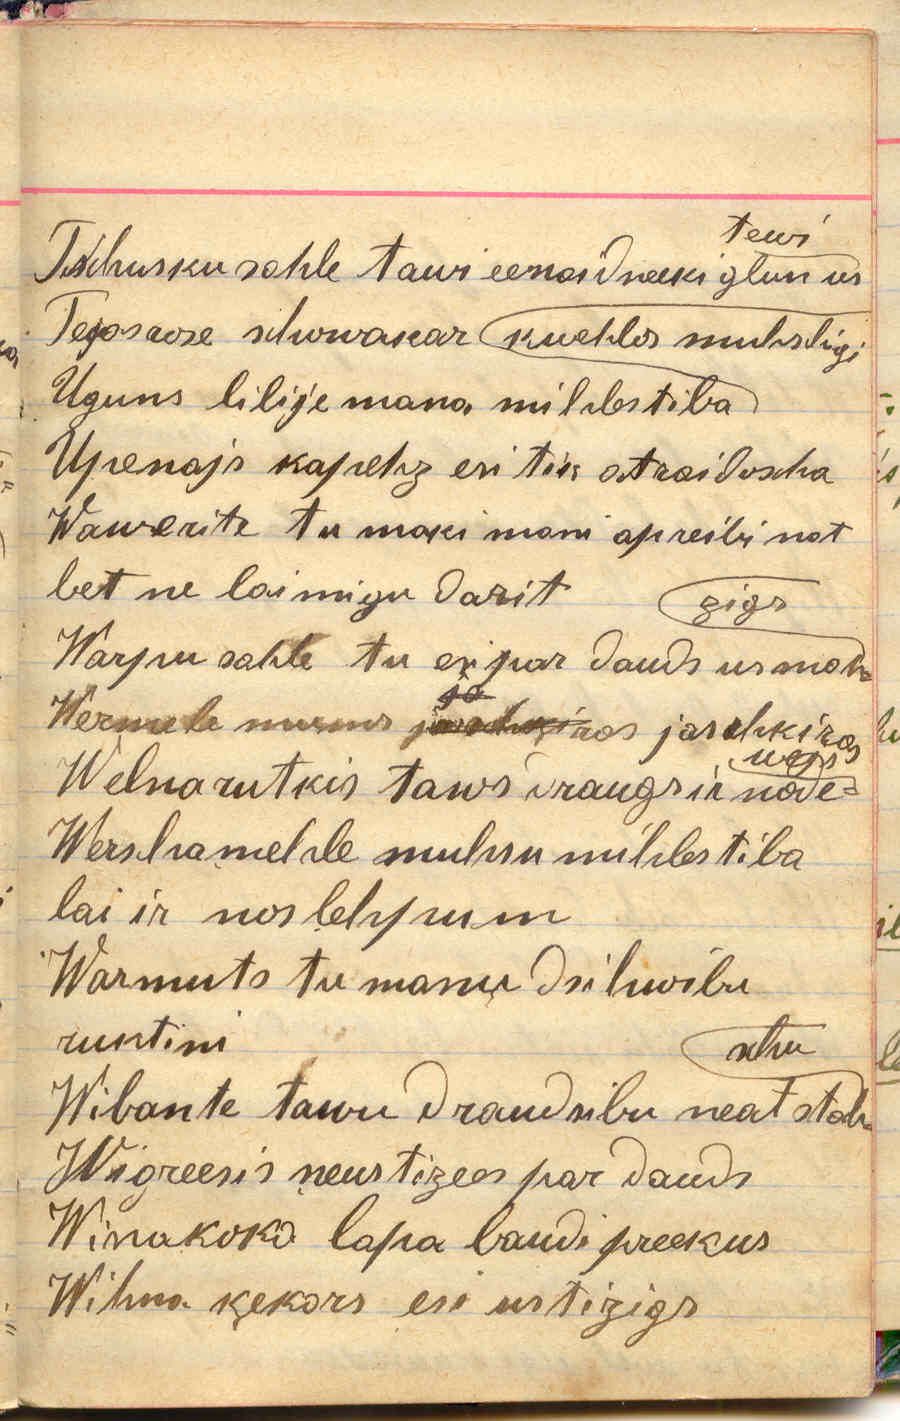 tewi
Tschusku sahle tawi eenaidneeki glun us
Tejas rose schowakar kwehlos muhsligi
Uguns lilije mana mihlestiba
Upenajs kapehz esi tik atraidoscha
Wawerite tu maki mani apreibinat
bet ne laimigu darit
zigs
Warpu sahle tu esi par dauds usmah
Wermele murms jaschkiras
Welnarutkis taws draugs ir node=
wejs
Werschamehle muhsu mihlestiba
lai ir noslehpum
Warmuts tu manu dsihwibu
ruktini
schu
Wibante tawu draudsibu neat stah
Wigreesis neustizees par dauds
Winakoka lapa baudi preekus
Wihna kekars esi ustizigs